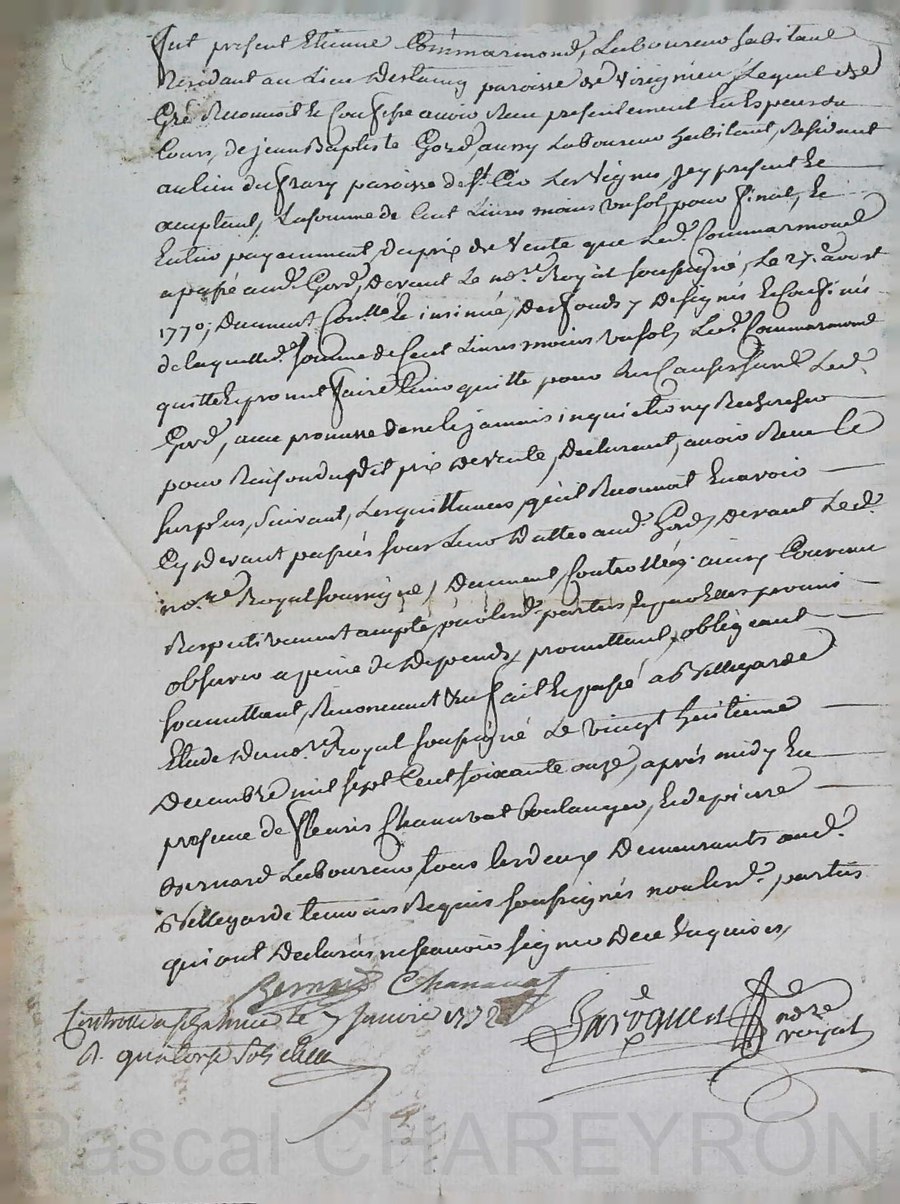 fut present Etienne Commarmond, Laboureur habitant
Residant au Lieu paroisse de Virignieu, Lequel de
Gré Reconnoit & Confesse avoir Reçu presentement En Especes du
Cours, de jean Baptiste Gord, aussy Laboureur habitant, Residant
au lieu du frary paroisse de St. Les Vignes, jcy present &
acceptant, La somme de Cent Livres moins un sol, pour final, &
Entier payemment, du prix de Vente que Led. Commarmond
a passé aud. Gord, devant Le no.re Royal soussigné, Le 27. aoust
1770, duement Con.llé & insinué, des fonds y designés & Confinés
de laquelle d. somme de Cent Livres moins un sol, Led. Commarmond
quitte & promet faire tenir quitte pour & Led.
Gord, avec promesse de ne le jamais inquietter ny Rechercher
pour Raison dudit prix de vente, declarant, avoir Receu le
surplus, suivant, Les quittances, qu'il Reconnoit En avoir
Cy devant passés sous Leur dattes aud. Gord, devant Led.
no.re Royal soussigné, duement Controllés; ainsy Convenu
Respectivement accepté, par lesd. parties, & par Elles promis
observer a peine de depends, promettant, obligeant
soumettant, Renonceant &c fait & passé a Bellegarde
Etude du no.re Royal soussigné Le vingt huitieme
decembre mil sept Cent soixante onze, après midy En
presence de fleuris Chanavat boulanger, & de pierre
Bernard Laboureur, tous les deux demeurants aud.
Bellegarde temoins Requis soussignés non lesd. parties
qui ont declarés ne sçavoir signer de ce Enquises,
Bernard Chanavat
Controllé a le 7 janvier 1772
R. quatorze sols
nore
royal